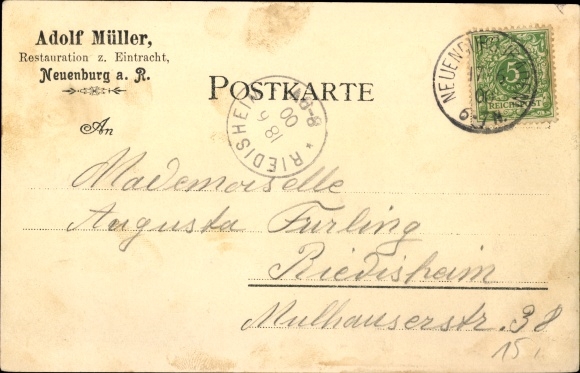 Adolf Müller,
Restauration z. Eintracht,
Neuenburg a. R.
POSTKARTE
An
NEUENBURG
6-7N
5
REICHSPOST
RIEDISHEIM
18 9
00
Mademoiselle
Augusta Furling
Riedisheim
Mulhauserstr. 38
15